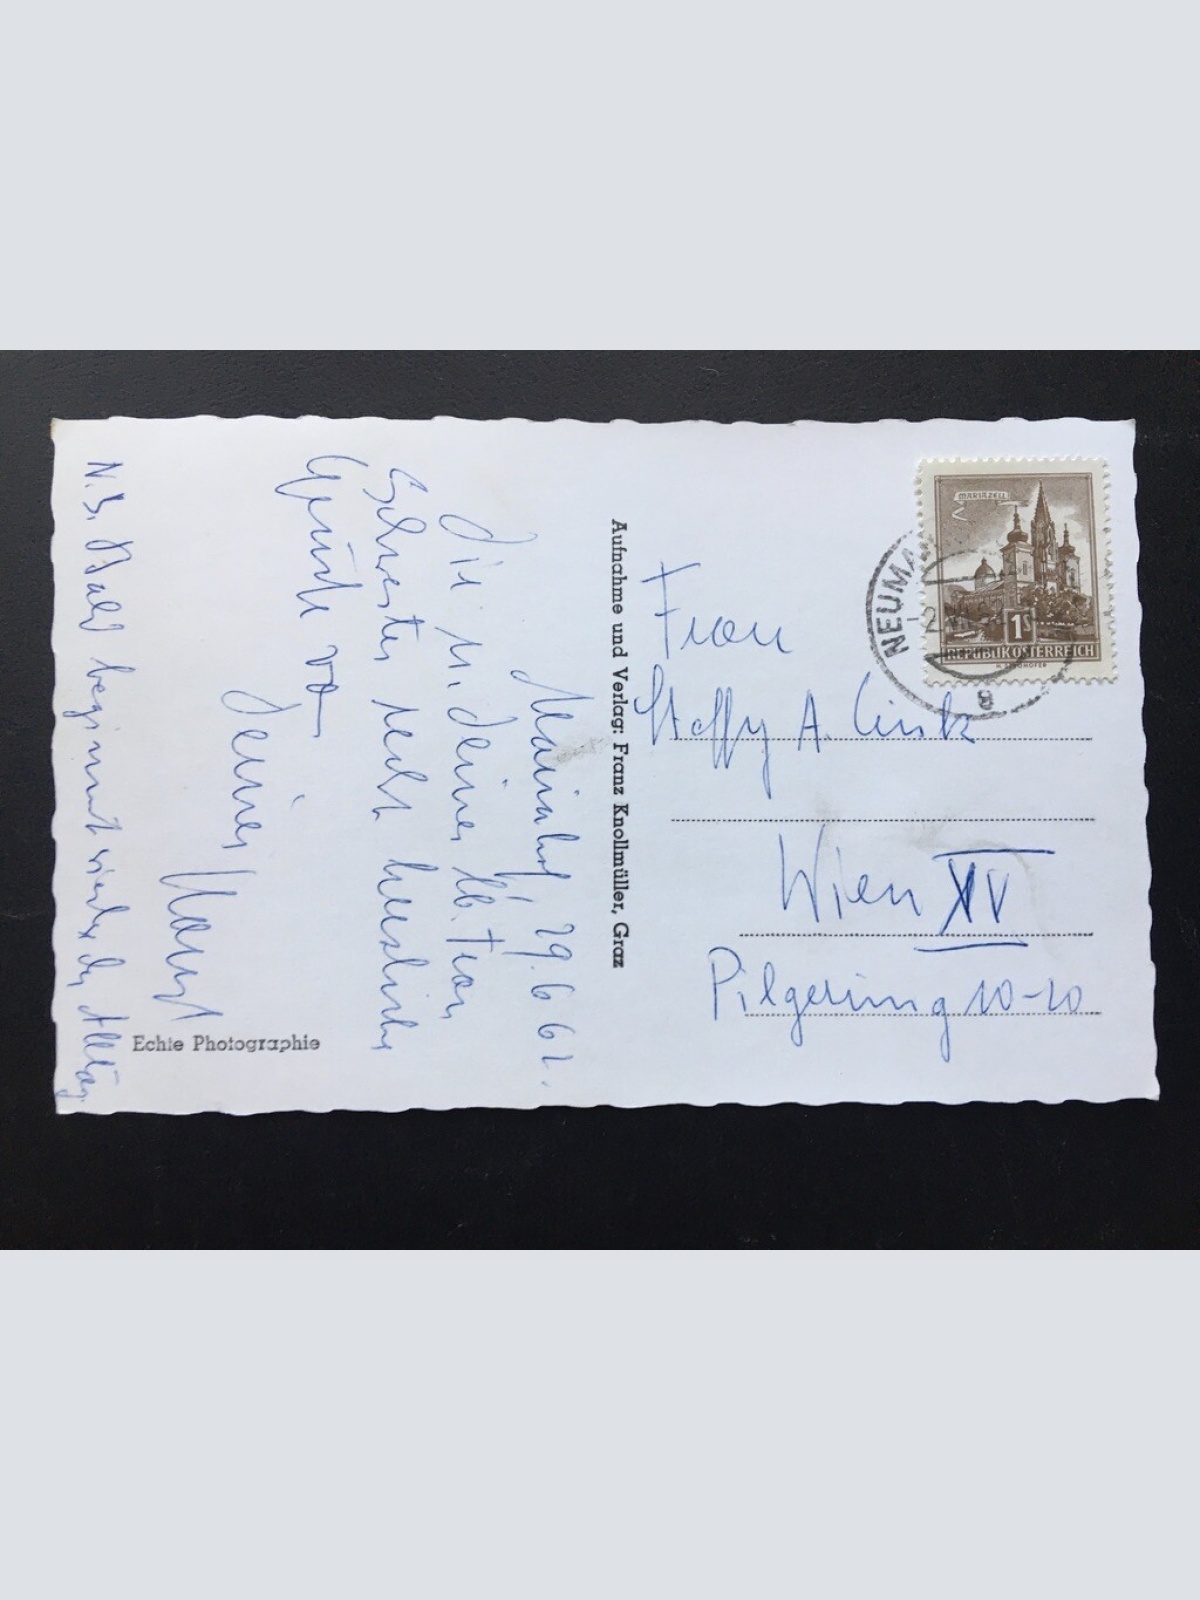 Mariahof, 29.6.62.
Dir u. Deiner lb. Frau
Schwester recht herzliche
Grüße von
Deiner
N.B. Bald beginnt wieder der Alltag.
Echte Photographie
Aufnahme und Verlag: Franz Knollmüller, Graz
MARIAZELL
1S
REPUBLIK ÖSTERREICH
NEUMA
8
Frau
Steffy A.
Wien XV
Pilgerimg 10-20